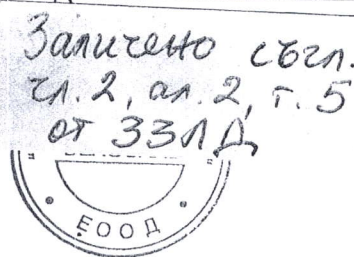 Заличено съгл.
чл. 2, ал. 2, т. 5
от ЗЗЛД
ЕООД